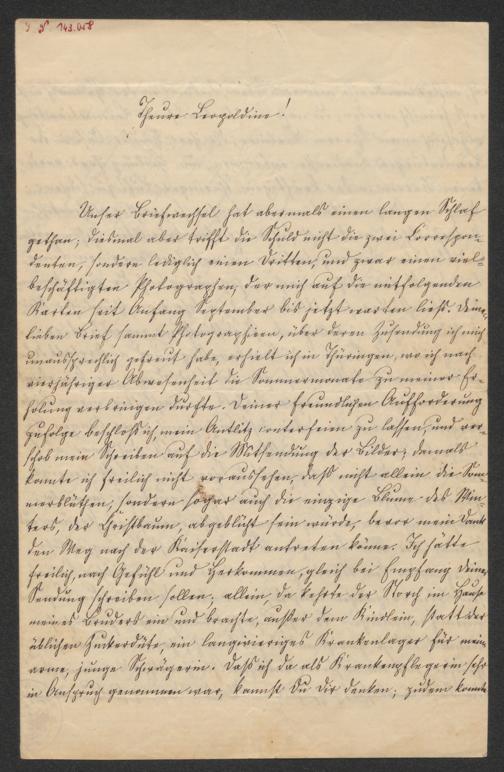 143.058
Theure Leopoldine!
Unser Briefwechsel hat abermals einen langen Schlaf
gethan; diesmal aber trifft die Schuld nicht die zwei Correspon-
denten, sondern lediglich einen Dritten, und zwar einen viel-
beschäftigten Photographen, der mich auf die mitfolgenden
Karten seit Anfang September bis jetzt warten ließ. Deine,
lieben Brief sammt Photographieen, über deren Zusendung ich mich
unaussprechlich gefreut habe, erhielt ich in Thüringen, wo ich nach
vierjähriger Abwesenheit die Sommermonate zu meiner Er-
holung verbringen durfte. Deiner freundlichen Aufforderung
zufolge beschloß ich, mein Antlitz conterfeien zu lassen, und ver-
schob mein Schreiben auf die Mitsendung der Bilder; damals
konnte ich freilich nicht voraussehen, daß nicht allein die Som-
merblüthen, sondern sogar auch die einzige Blume des Win-
ters, der Christbaum, abgeblüht sein würde, bevor mein Dank
den Weg nach der Kaiserstadt antreten könne. Ich hätte
freilich, nach Gefühl und Herkommen, gleich bei Empfang Deiner
Sendung schreiben sollen; allein da kehrte der Storch im Hause
meines Bruders ein und brachte, außer dem Kindlein, statt der
üblichen Zuckerdüte, ein langwieriges Krankenlager für meine
arme, junge Schwägerin. Daß ich da als Krankenpflegerin sehr
in Anspruch genommen war, kannst Du Dir denken; zudem konnte